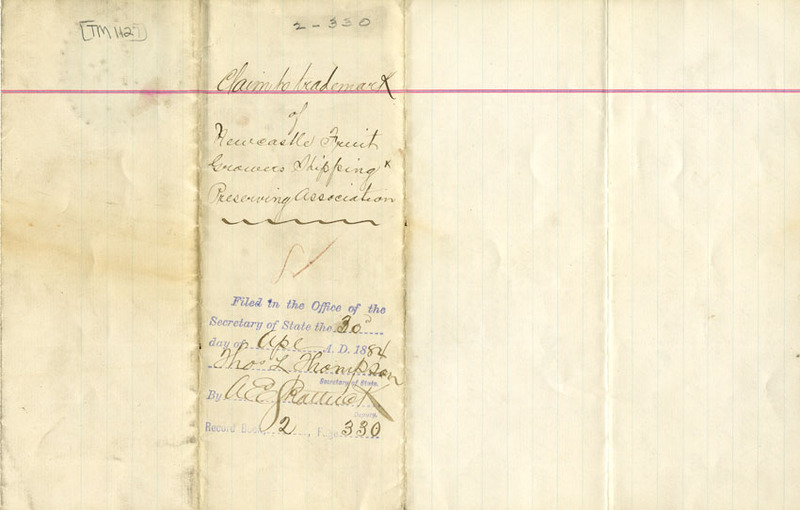 [TM 1127]
2-330
Claim to trademark
of
Newcastle Fruit
Growers Shipping &
Preserving Association
Filed in the Office of the
Secretary of State the 30"
day of Ape A. D. 1884
Thos L Thompson
Secretary of State.
By A E Shattuck
Deputy.
Record Book 2, Page 330